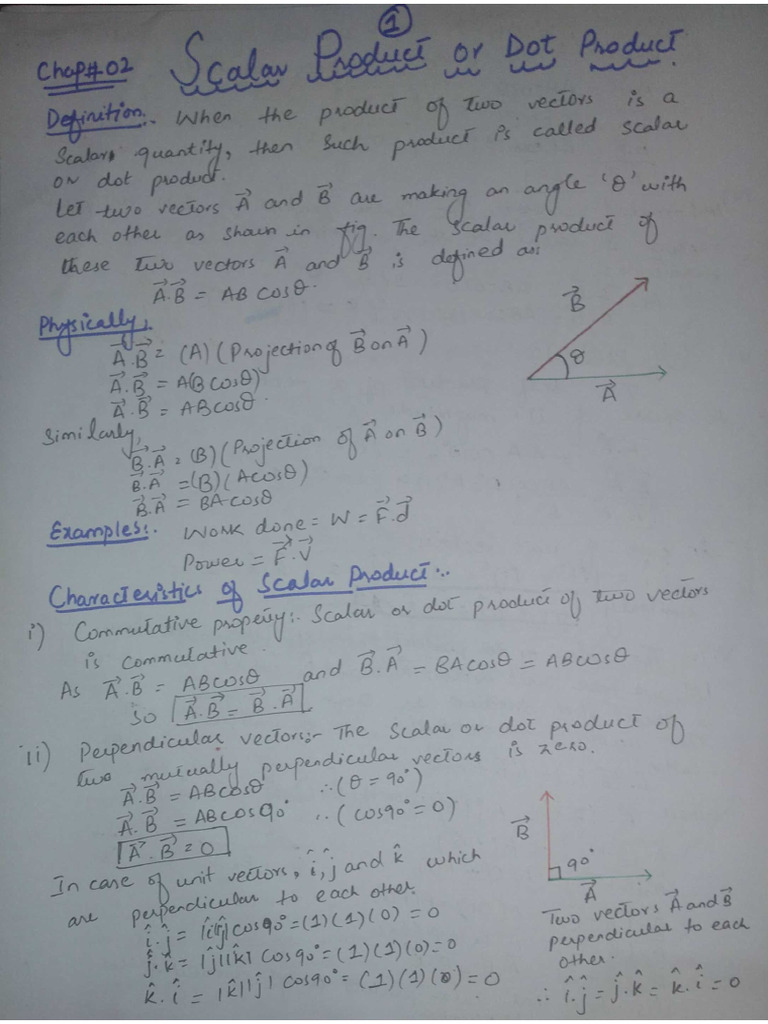 ①
Chap#02 Scalar Product or Dot Product.
Definition:. When the product of two vectors is a
Scalar, quantity, then such product is called scalar
or dot product.
Let two vectors A⃗ and B⃗ are making an angle 'θ' with
each other as shown in fig. The scalar product of
these two vectors A⃗ and B⃗ is defined as:
A⃗.B⃗ = AB cosθ.
Physically:.
A⃗.B⃗ = (A) (Projection of B⃗ on A⃗)
A⃗.B⃗ = A(B cosθ)
A⃗.B⃗ = ABcosθ.
B⃗
θ
A⃗
Similarly,
B⃗.A⃗ = (B) (Projection of A⃗ on B⃗)
B⃗.A⃗ = (B) (A cosθ)
B⃗.A⃗ = BA cosθ
Examples:. Work done = W = F⃗.d⃗
Power = F⃗.V⃗
Characteristics of Scalar Product:.
i) Commutative property:. Scalar or dot product of two vectors
is commutative.
As A⃗.B⃗ = ABcosθ and B⃗.A⃗ = BAcosθ = ABcosθ
So A⃗.B⃗ = B⃗.A⃗
ii) Perpendicular vectors:- The Scalar or dot product of
two mutually perpendicular vectors is zero.
A⃗.B⃗ = ABcosθ ∴ (θ = 90°)
A⃗.B⃗ = ABcos90° ∴ (cos90° = 0)
A⃗.B⃗ = 0
In case of unit vectors, î, ĵ and k̂ which
are perpendicular to each other.
î.ĵ = |î||ĵ| cos90° = (1)(1)(0) = 0
ĵ.k̂ = |ĵ||k̂| cos90° = (1)(1)(0) = 0
k̂.î = |k̂||ĵ| cos90° = (1)(1)(0) = 0
B⃗
90°
A⃗
Two vectors A⃗ and B⃗
perpendicular to each
other.
∴ î.ĵ = ĵ.k̂ = k̂.î = 0